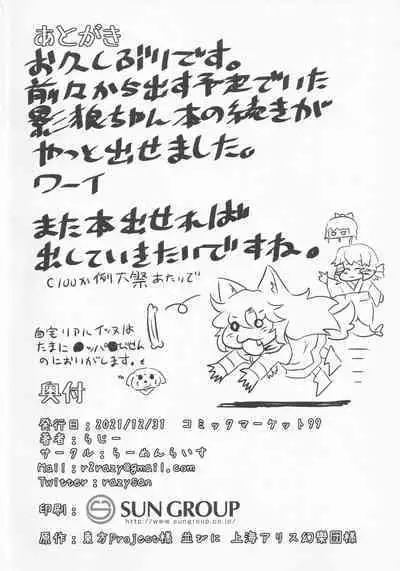 あとがき
お久しぶりです。
前々から出す予定でいた
影狼ちゃん本の続きが
やっと出せました。
ワーイ
また本出せれば
出していきたいですね。
C100か例大祭あたりで
自宅リアルイッヌは
たまに●ッパ●びせん
のにおいがします。
奥付
発行日：2021/12/31　コミックマーケット99
著者：らじー
サークル：らーめんらいす
Mail：r2razy@gmail.com
Twitter：razysan
印刷：SUN GROUP
http://www.sungroup.co.jp/
原作：東方Project様 並びに 上海アリス幻樂団様